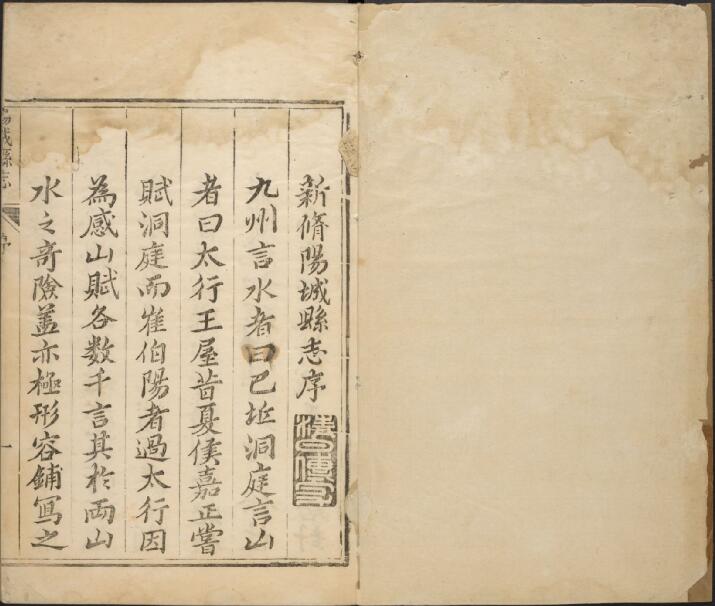 新脩陽城縣志序
九州言水者曰巴坵洞庭言山
者曰太行王屋昔夏侯嘉正嘗
賦洞庭而崔伯陽者過太行因
為感山賦各数千言其於兩山
水之奇險盖亦極形容鋪寫之
陽城縣志
序
一